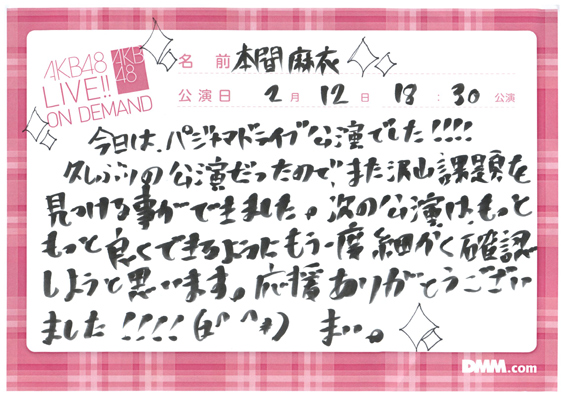 AKB48
LIVE!!
ON DEMAND
AKB
48
名 前 本間 麻衣
公演日 2月 12日 18:30 公演
今日は、パジャマドライブ公演でした!!!!
久しぶりの公演だったので、また沢山課題を
見つける事ができました。次の公演は、もっと
もっと良くできるようにもう一度細かく確認
しようと思います。応援ありがとうござい
ました!!!! (*^^*) まい。
DMM.com